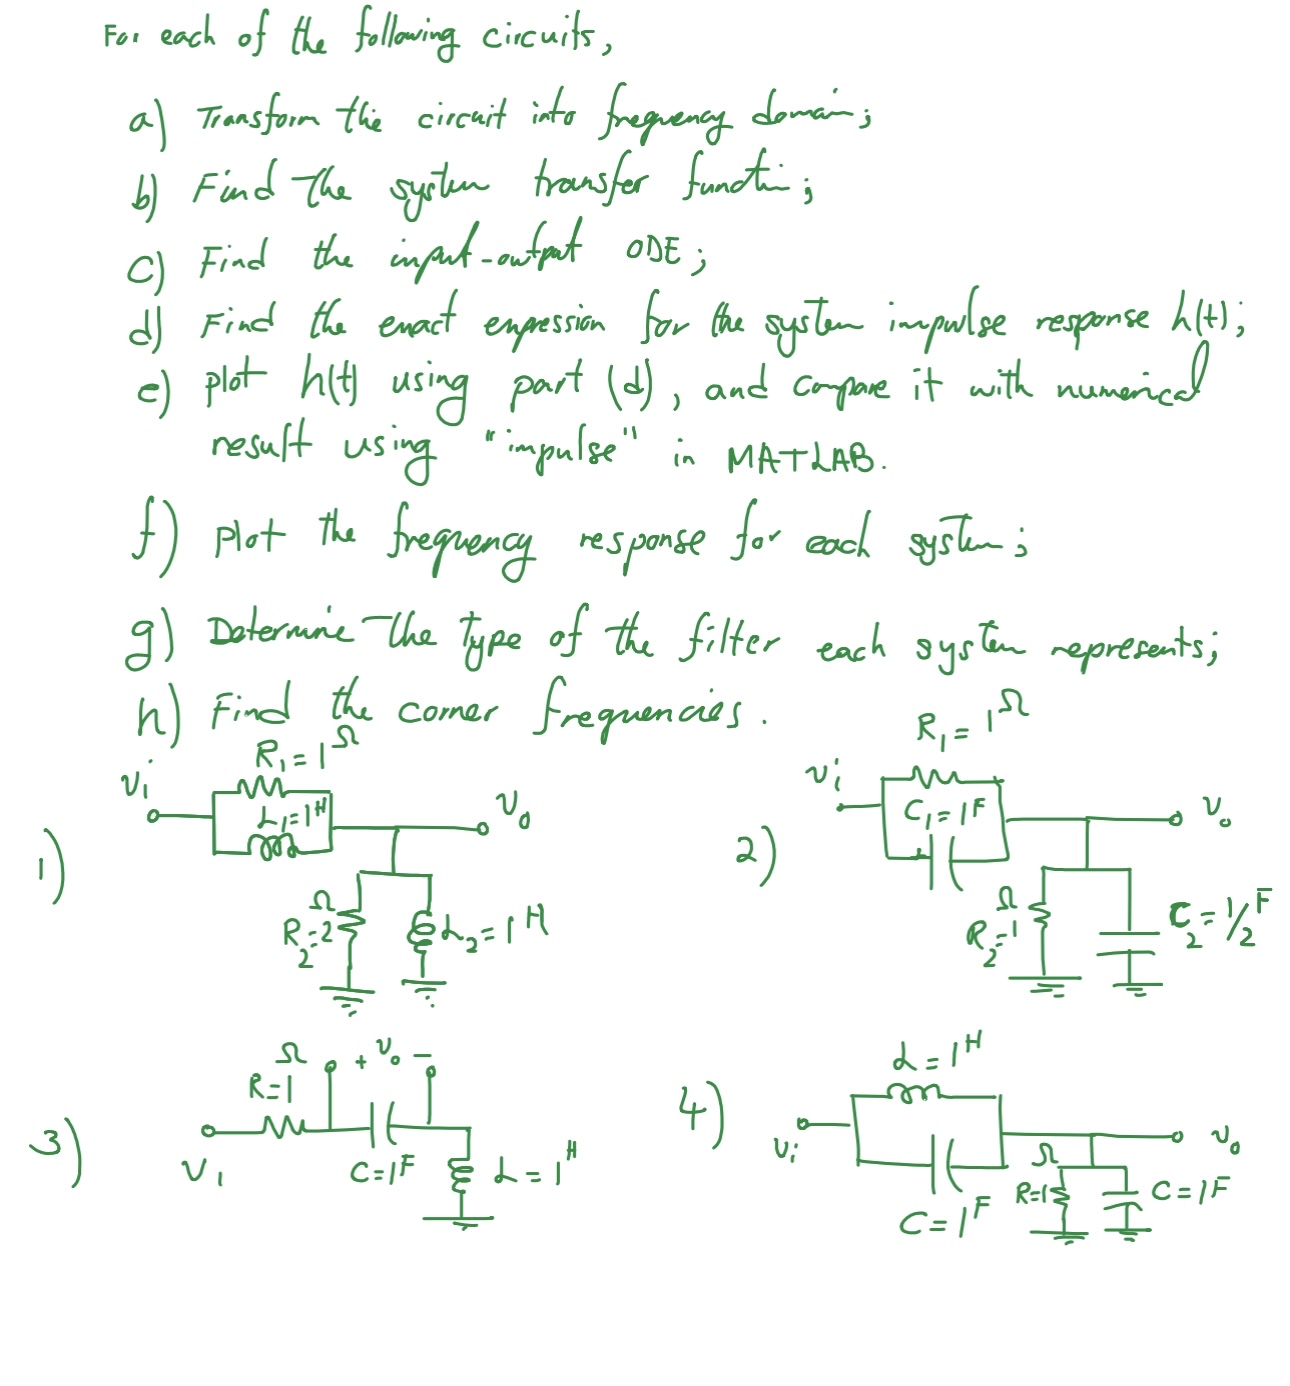 For each of the following circuits,
a) Transform the circuit into frequency domain;
b) Find the system transfer functi;
c) Find the input-output ODE;
d) Find the exact expression for the system impulse response h(t);
e) plot h(t) using part (d), and compare it with numerical
result using "impulse" in MATLAB.
f) plot the frequency response for each system;
g) Determine the type of the filter each system represents;
h) Find the corner frequencies.
1)
Vi
R1=1Ω
L1=1H
Vo
R2=2Ω
L2=1H
2)
Vi
R1=1Ω
C1=1F
Vo
R2=1Ω
C2=1/2F
3)
Vi
R=1Ω
+ Vo −
C=1F
L=1H
4)
Vi
L=1H
C=1F
Vo
R=1Ω
C=1F